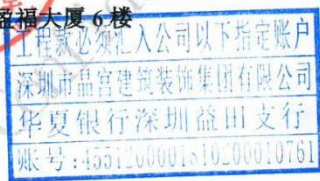 盈福大厦6楼
工程款必须汇入公司以下指定账户
深圳市晶宫建筑装饰集团有限公司
华夏银行深圳益田支行
账号:4551200001810200010761